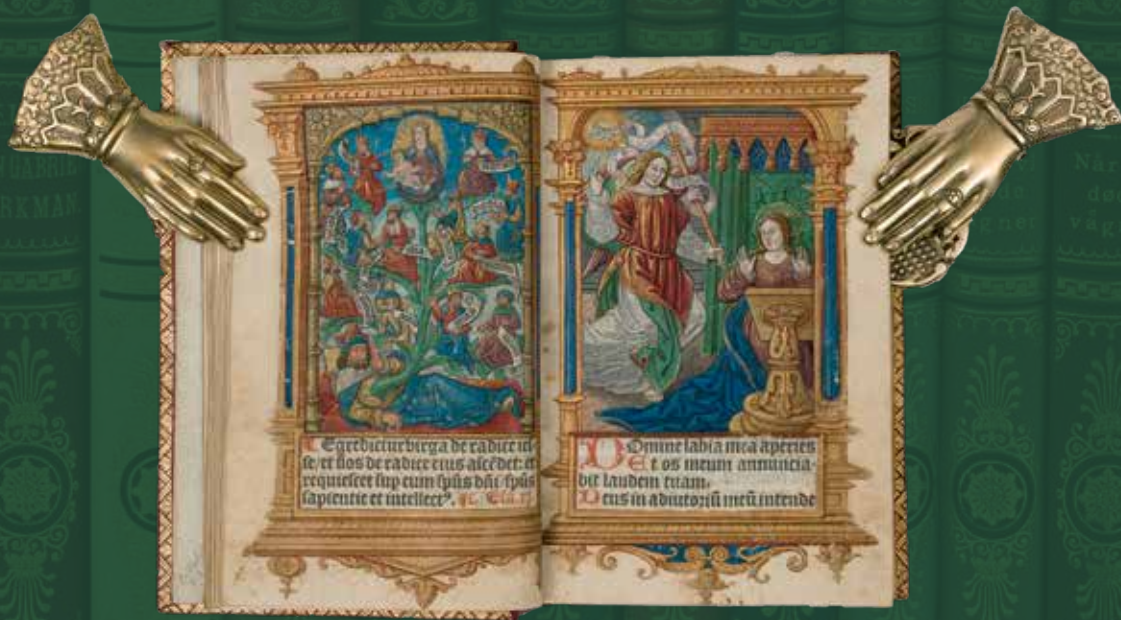 Egredietur virga de radice ies
se / et flos de radice eius ascēdet: et
requiescet sup eum spūs dñi / spūs
sapientie et intellectꝰ.
Domine labia mea aperies
Et os meum annuncia-
bit laudem tuam.
Deus in adiutoriū meū intende